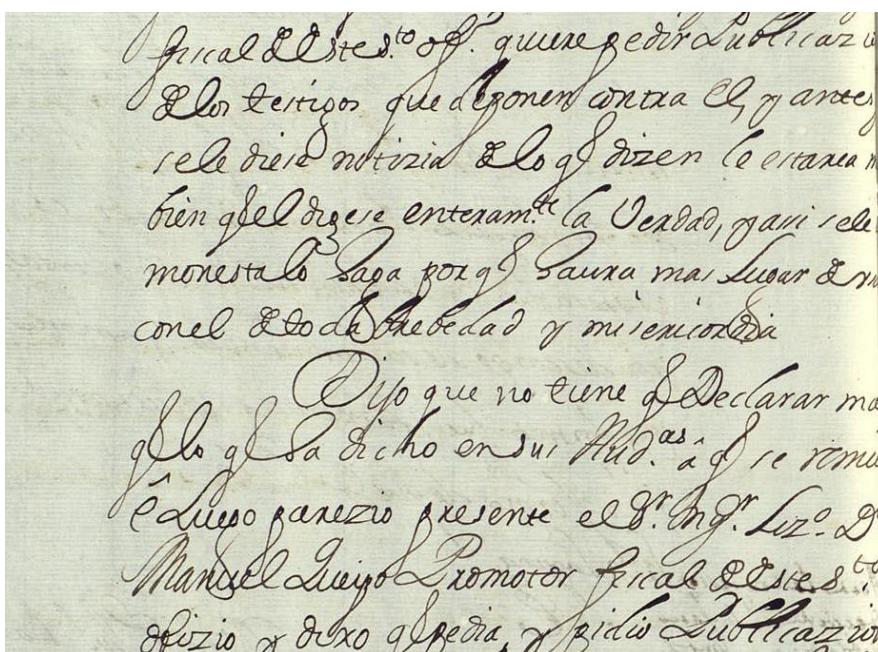 fiscal de este s.to off.o quiere pedir Publicazio
de los testigos que deponen contra el, y antes
se le diese notizia de lo q dizen le estarea m
bien q el digese enteram.te la Verdad, y asi se le
monesta lo haga por q haura mas Lugar de
con el de toda brebedad y misericordia
Dijo que no tiene q Declarar ma
q lo q ha dicho en sus Aud.as â q se remi
ê Luego parezio presente el S.r Liz.o D
Manuel Promotor fiscal de este s.to
ofizio y dixo q pedia, y pidio Publicazion